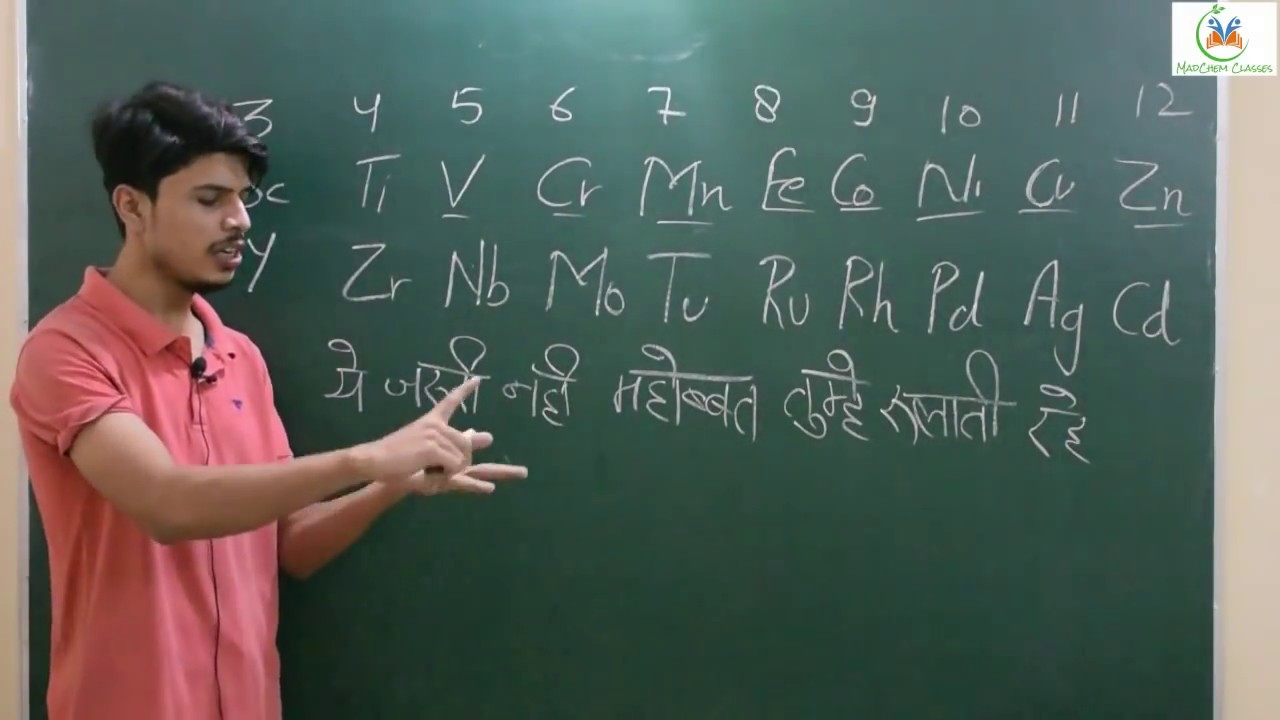 MADCHEM CLASSES
3 4 5 6 7 8 9 10 11 12
Sc Ti V Cr Mn Fe Co Ni Cu Zn
Y Zr Nb Mo Tu Ru Rh Pd Ag Cd
ये नही महोब्बत तुम्हे रुलाती रहे